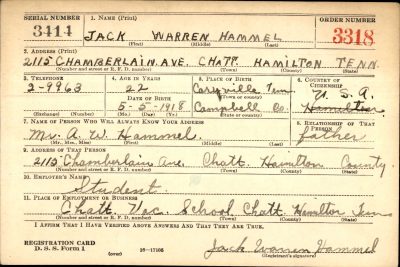 SERIAL NUMBER 1. NAME (Print) ORDER NUMBER
3414 JACK WARREN HAMMEL 3318
(First) (Middle) (Last)
2. ADDRESS (Print)
2115 CHAMBERLAIN AVE. CHATT. HAMILTON TENN
(Number and street or R. F. D. number) (Town) (County) (State)
3. TELEPHONE 4. AGE IN YEARS 5. PLACE OF BIRTH 6. COUNTRY OF CITIZENSHIP
2-9963 22 Caryville Tenn U. S. A.
DATE OF BIRTH (Town)
5-5-1918 Campbell Co. Hamilton
(Exchange) (Number) (Mo.) (Day) (Yr.) (State or country)
7. NAME OF PERSON WHO WILL ALWAYS KNOW YOUR ADDRESS 8. RELATIONSHIP OF THAT PERSON
Mr. A. W. Hammel father
(Mr., Mrs., Miss) (First) (Middle) (Last)
9. ADDRESS OF THAT PERSON
2115 Chamberlain Ave. Chatt. Hamilton County
(Number and street or R. F. D. number) (Town) (County) (State)
10. EMPLOYER'S NAME
Student
11. PLACE OF EMPLOYMENT OR BUSINESS
Chatt. Vac. School, Chatt. Hamilton Tenn
(Number and street or R. F. D. number) (Town) (County) (State)
I AFFIRM THAT I HAVE VERIFIED ABOVE ANSWERS AND THAT THEY ARE TRUE.
REGISTRATION CARD
D. S. S. Form 1 (over) 16-17105 Jack Warren Hammel
(Registrant's signature)